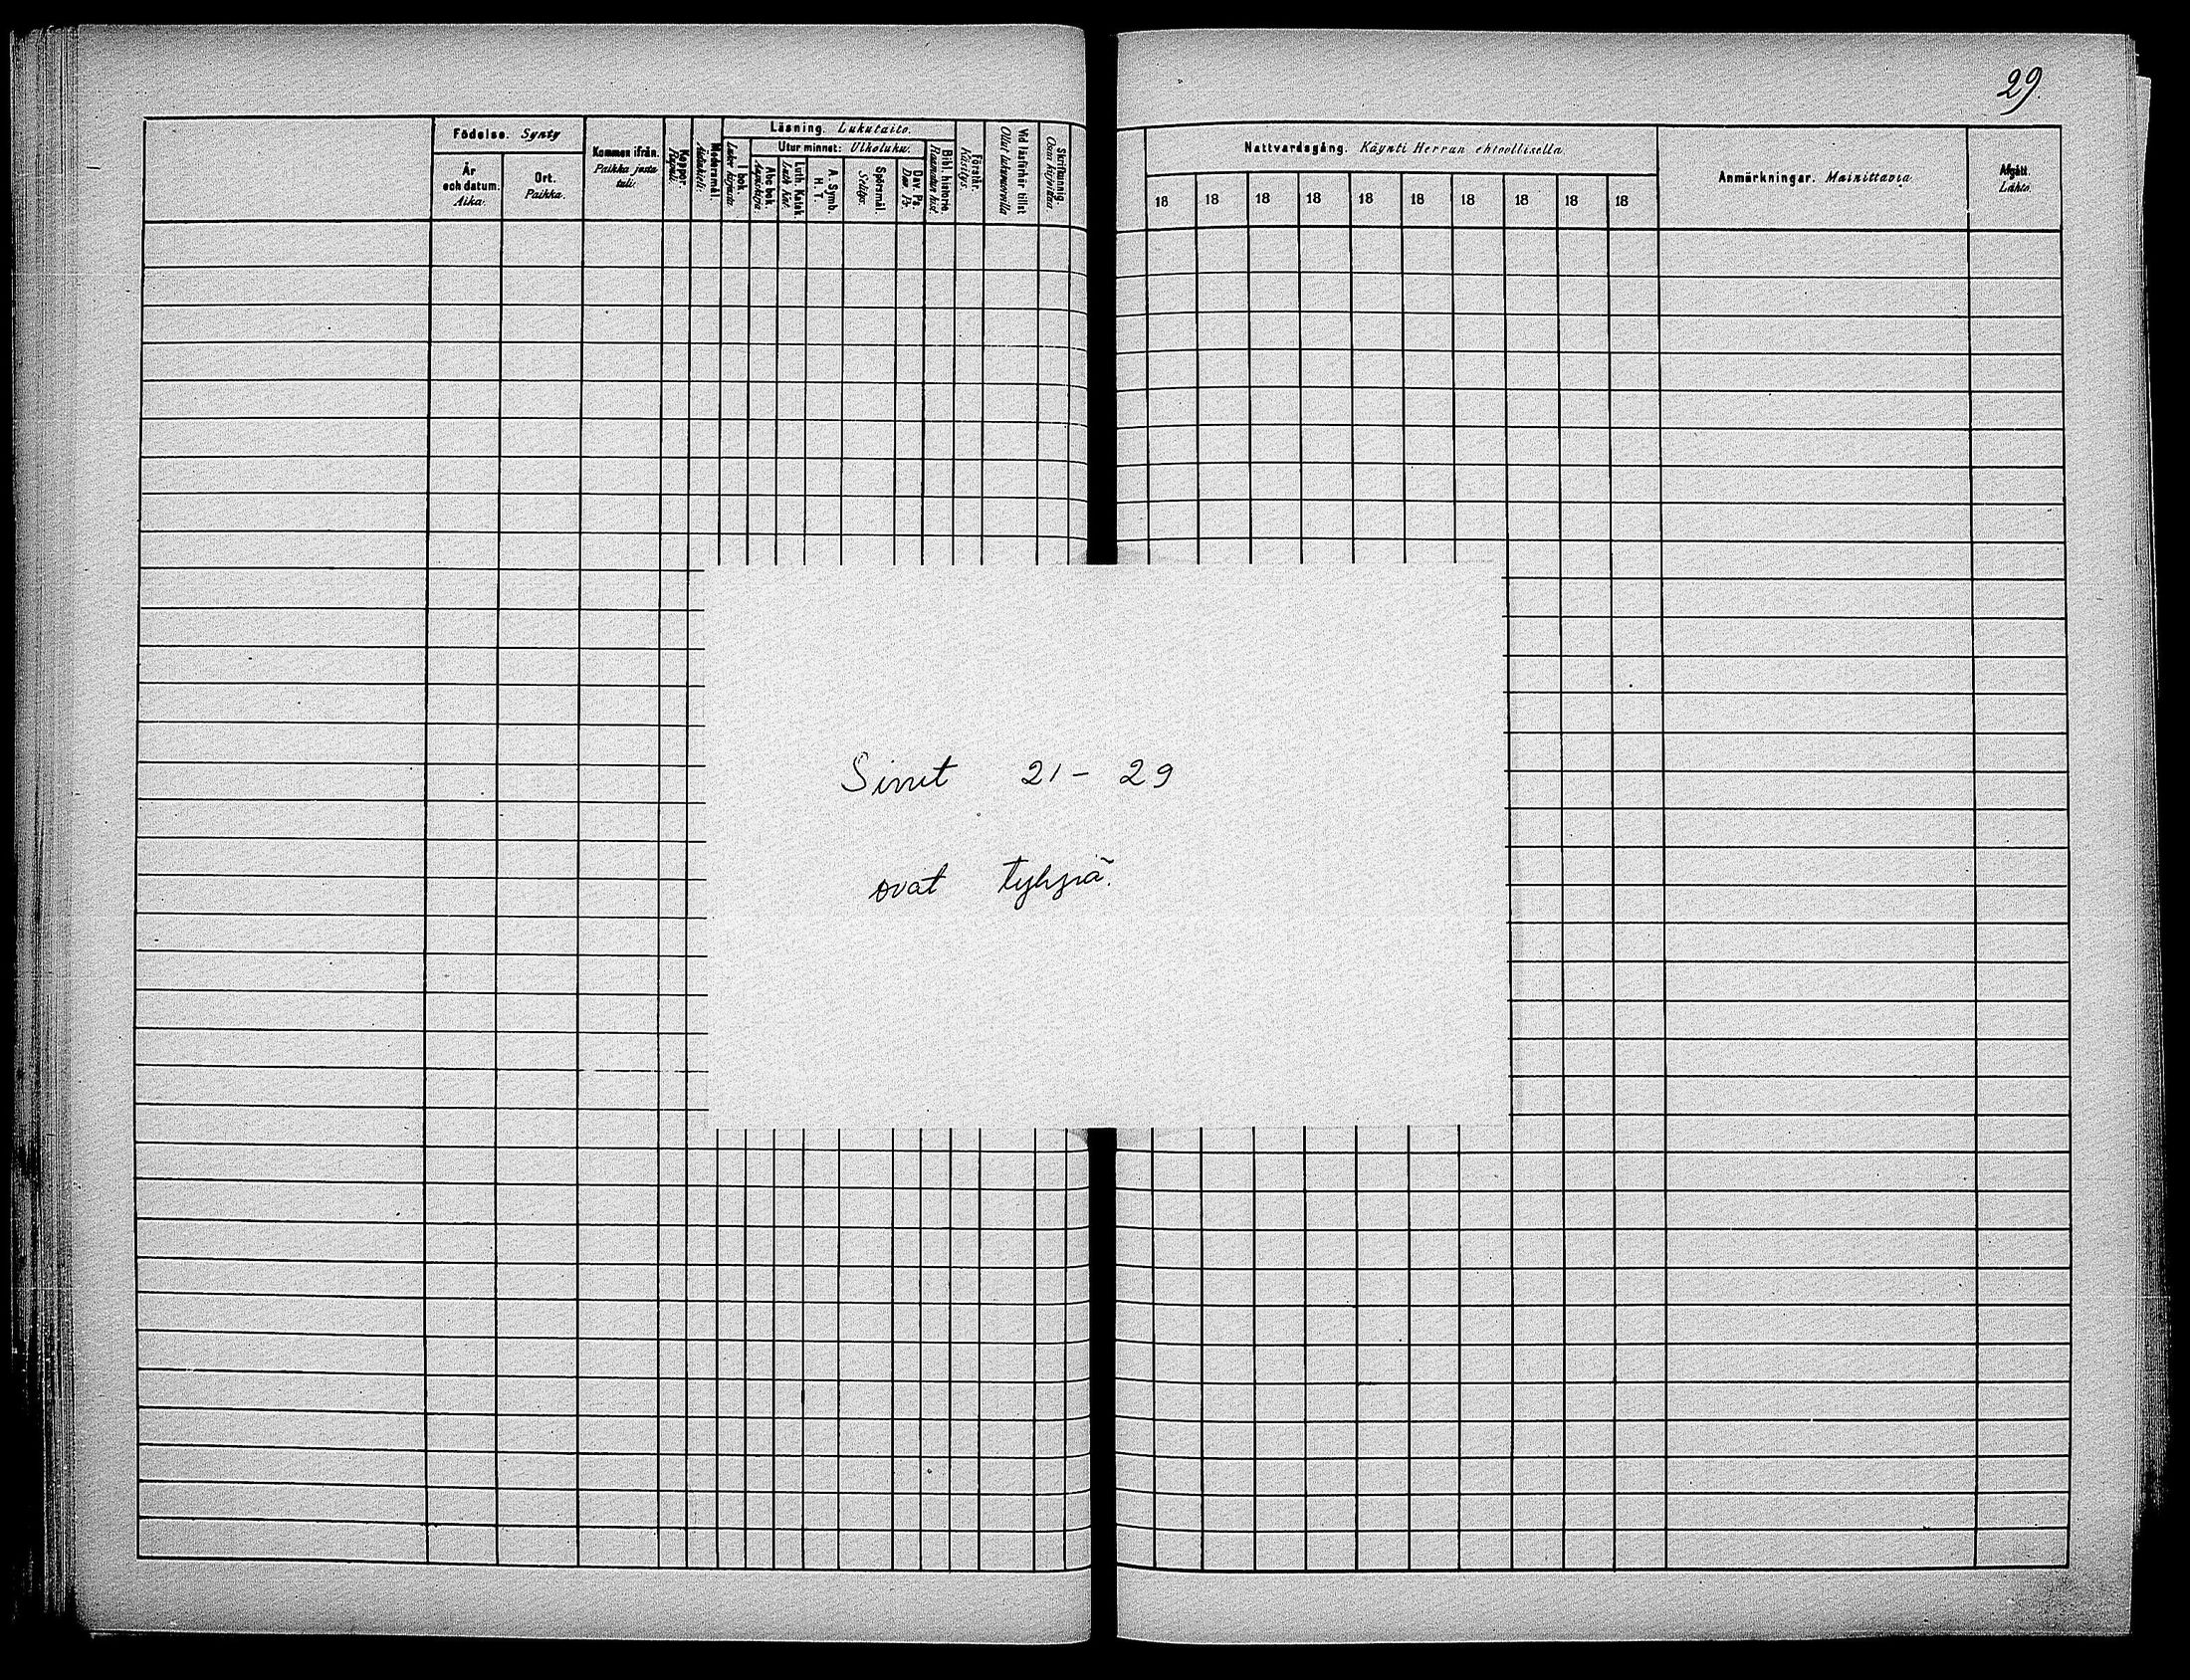 29.
Födelse. Synty
År och datum. Aika.
Ort. Paikka.
Kommen ifrån. Paikka josta tuli.
Koppor. Rupuli.
Modersmål. Äidinkieli.
Läsning. Lukutaito.
I bok.
Utur minnet: Ulkoluku.
Abc bok. Aapiskirja
Luth. Katek. Luth. Kat.
A. Symb. H. T.
Spörsmål. Selitys.
Dav. Ps. Dav. Ps.
Bibl. historie. Raamatun hist.
Förståhr. Käsitys.
Vid läsförhör tillst. Ollut lukuvuorolla
Nattvardsgång. Käynti Herran ehtoollisella.
18 18 18 18 18 18 18 18 18 18
Anmärkningar. Mainittavia
Afgått. Lähtö.
Sivut 21 - 29
ovat tyhjiä.